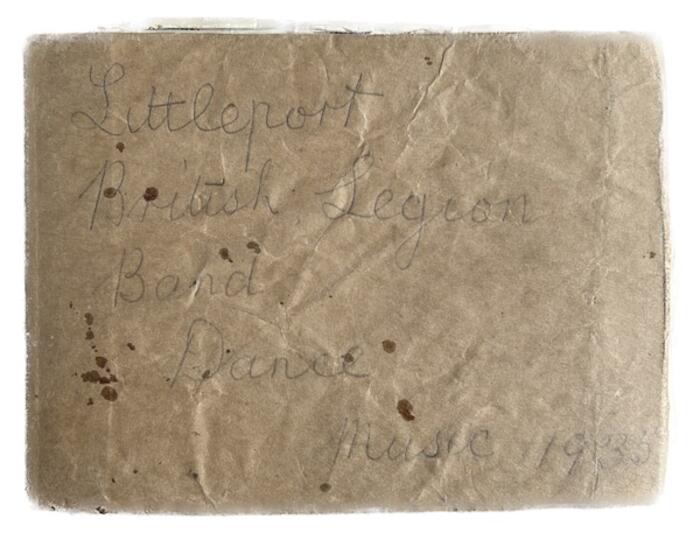 Littleport
British Legion
Band
Dance
Music 1935